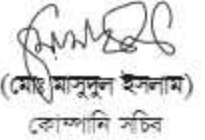 (মোঃ মাসুদুল ইসলাম)
কোম্পানি সচিব